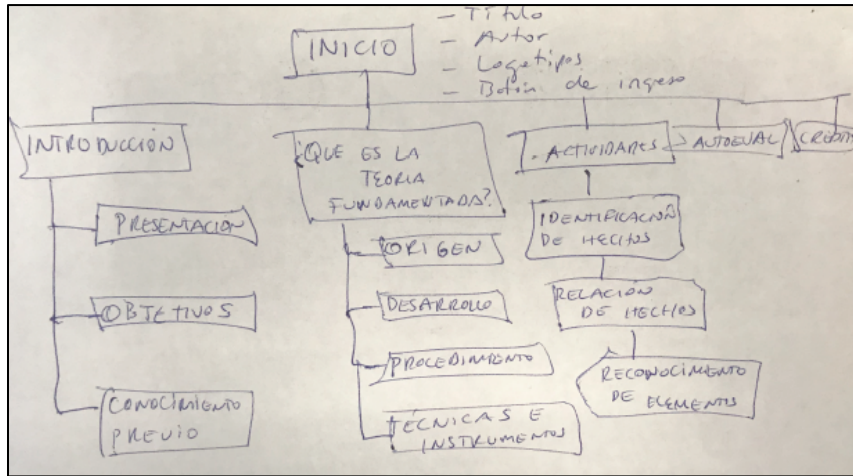 INICIO
- Título
- Autor
- Logotipos
- Botón de ingreso
INTRODUCCIÓN
PRESENTACIÓN
OBJETIVOS
CONOCIMIENTO
PREVIO
¿QUE ES LA
TEORIA
FUNDAMENTADA?
ORIGEN
DESARROLLO
PROCEDIMIENTO
TÉCNICAS E
INSTRUMENTOS
. ACTIVIDADES
IDENTIFICACIÓN
DE HECHOS
RELACIÓN
DE HECHOS
RECONOCIMIENTO
DE ELEMENTOS
AUTOEVAL